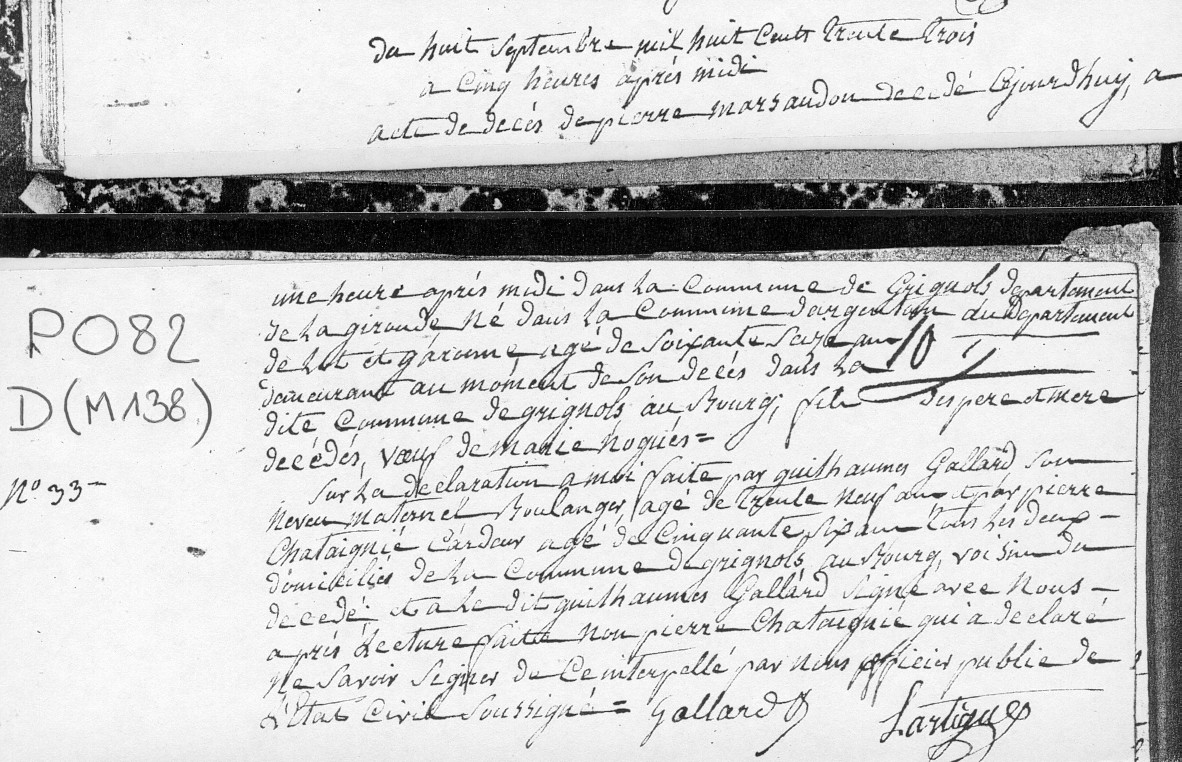 du huit Septembre mil huit Cent trente trois
a Cinq heures après midi
acte de décès de pierre marsaudon décédé Cejourdhuy, a
une heure après midi dans la Commune de Grignols departement
de la gironde, né dans la Commune dargenton du Departement
de lot et garonne, agé de Soixante Seize ans
demeurant au moment de Son décés dans la
dite Commune de grignols au Bourg, fils des pere et mere
décédés, vœuf de marie Noguès =
PO82
D(M138)
N° 33 -
Sur la declaration a moi faite par guilhaumes Gallard, Son
neveu maternel Boulanger, agé de trente neuf ans et par pierre
Chataignié Cardeur agé de Cinquante Six ans tous les deux -
domiciliés de la Commune de grignols au Bourg, voisin du
décedé; et a le dit guilhaumes Gallard Signé avec Nous -
après Lecture faitte non pierre Chataignié qui à declaré
ne Savoir Signer de Ce interpellé par nous officier public de
L'Etat Civil Soussigné = Gallard
Lartigue